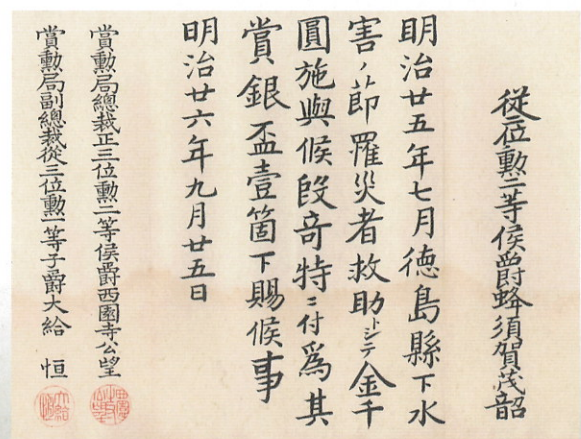 從二位勲二等侯爵蜂須賀茂韶
明治廿五年七月徳島縣下水
害ノ節罹災者救助トシテ金千
圓施與候段奇特ニ付爲其
賞銀盃壹箇下賜候事
明治廿六年九月廿五日
賞勲局總裁正三位勲二等侯爵西園寺公望
賞勲局副總裁從三位勲一等子爵大給 恒